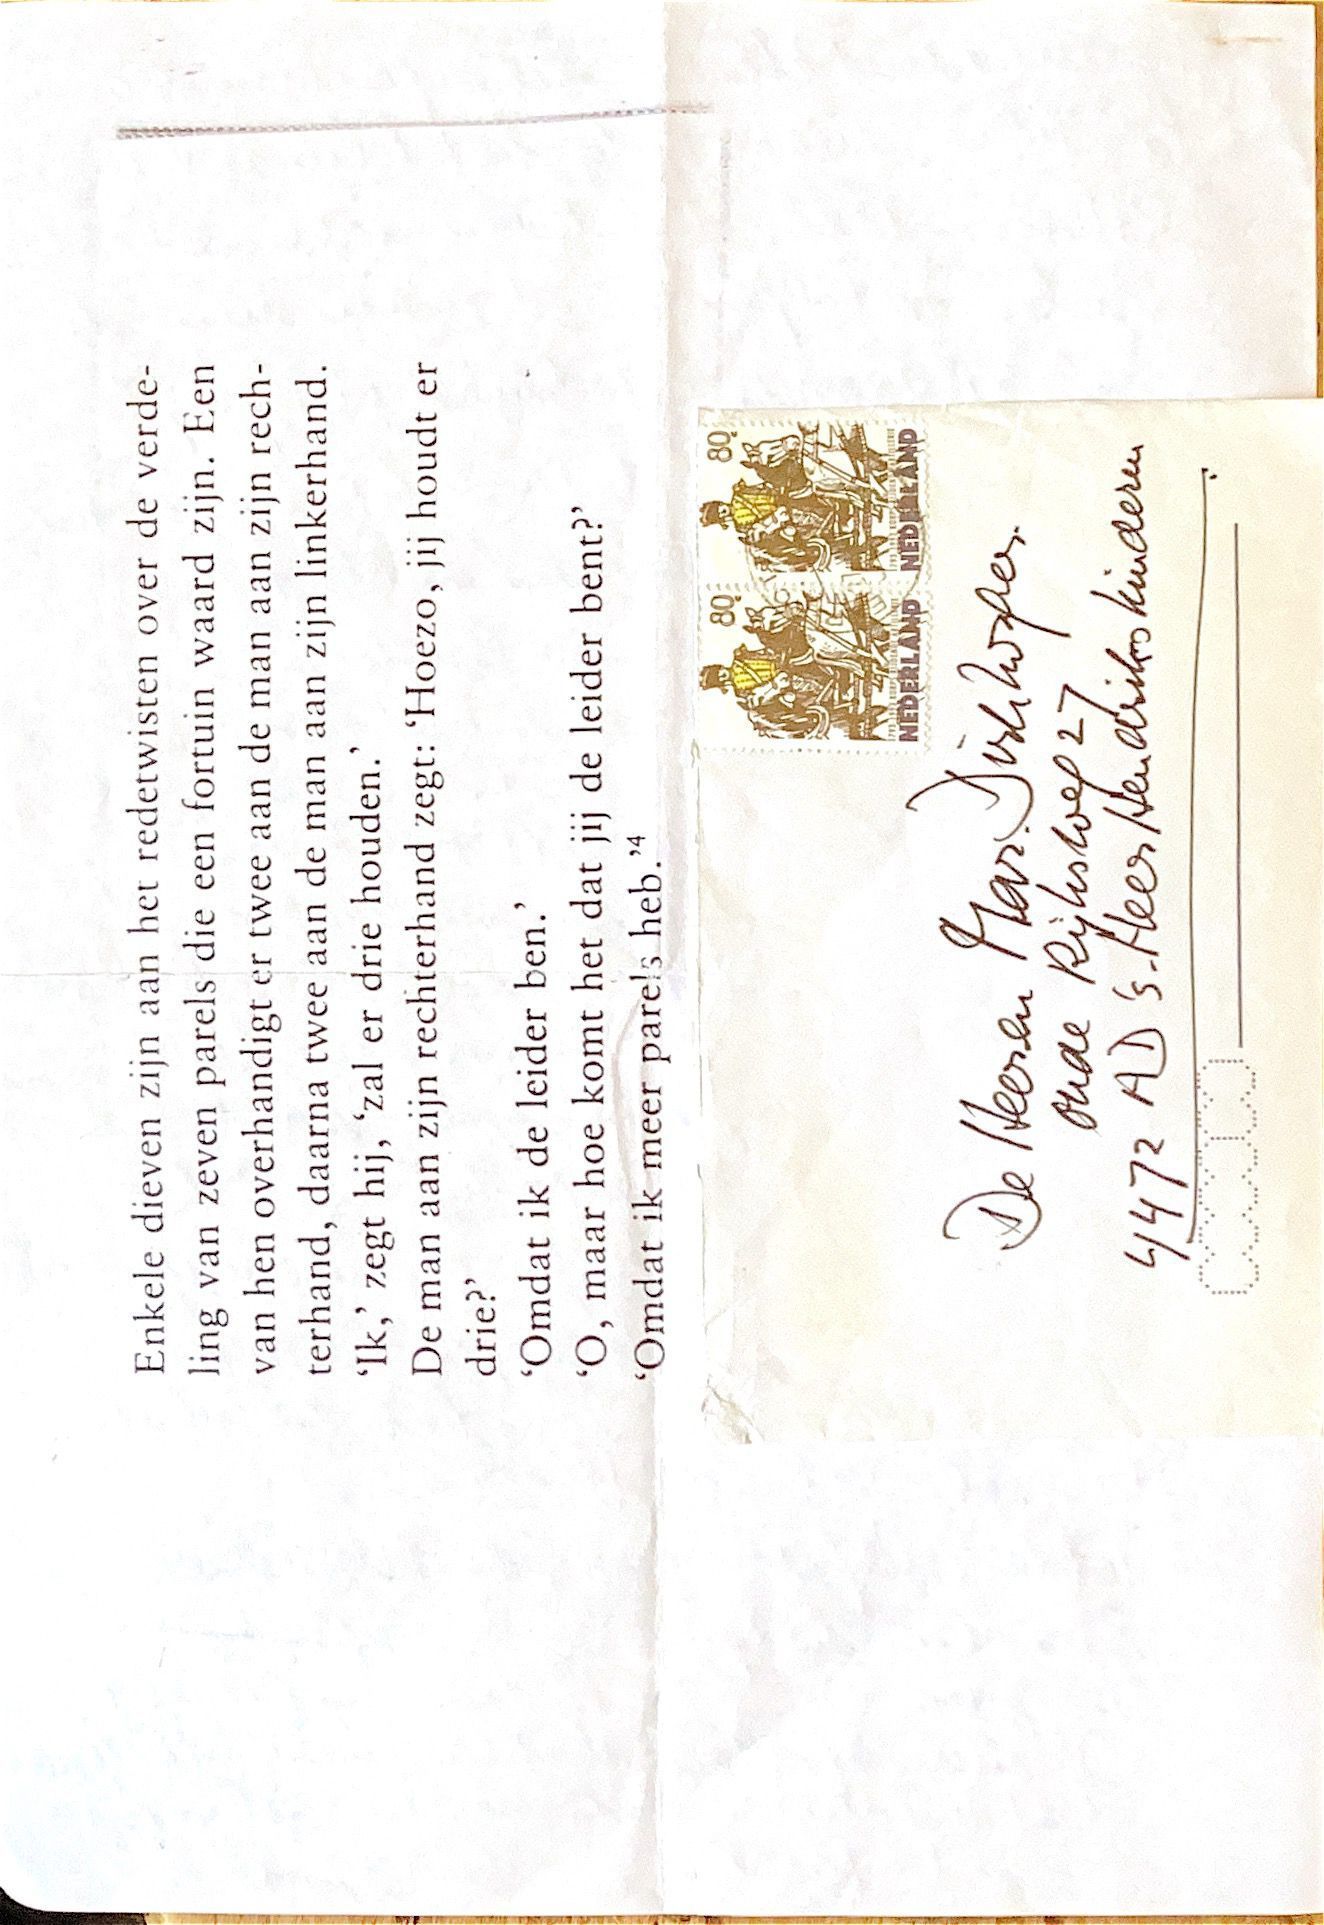 Enkele dieven zijn aan het redetwisten over de verde-
ling van zeven parels die een fortuin waard zijn. Een
van hen overhandigt er twee aan de man aan zijn rech-
terhand, daarna twee aan de man aan zijn linkerhand.
‘Ik,’ zegt hij, ‘zal er drie houden.’
De man aan zijn rechterhand zegt: ‘Hoezo, jij houdt er
drie?’
‘Omdat ik de leider ben.’
‘O, maar hoe komt het dat jij de leider bent?’
‘Omdat ik meer parels heb.’⁴
80c 80c
NEDERLAND NEDERLAND
De Heren
Oude Rijksweg 27
4472 AD 's-Heer Hendrikskinderen